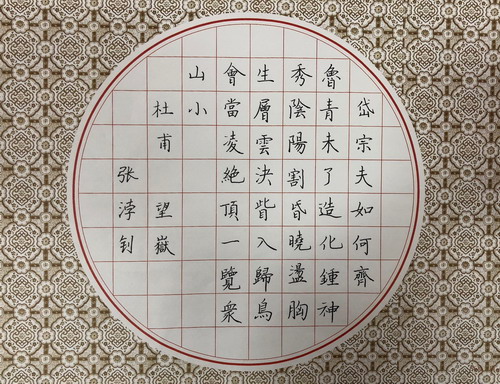 岱宗夫如何齊
魯青未了造化鍾神
秀陰陽割昏曉盪胸
生層雲決眥入歸鳥
會當凌絶頂一覽衆
山小
杜甫 望嶽
张浡钊